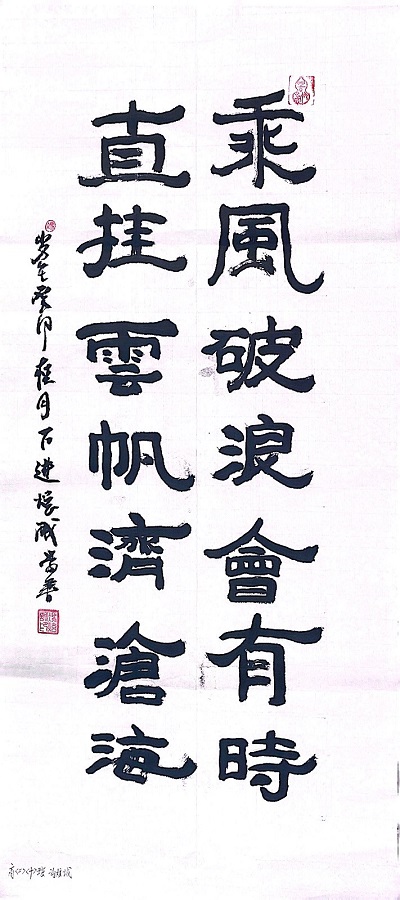 乘風破浪會有時
直挂雲帆濟滄海
歲在癸卯桂月